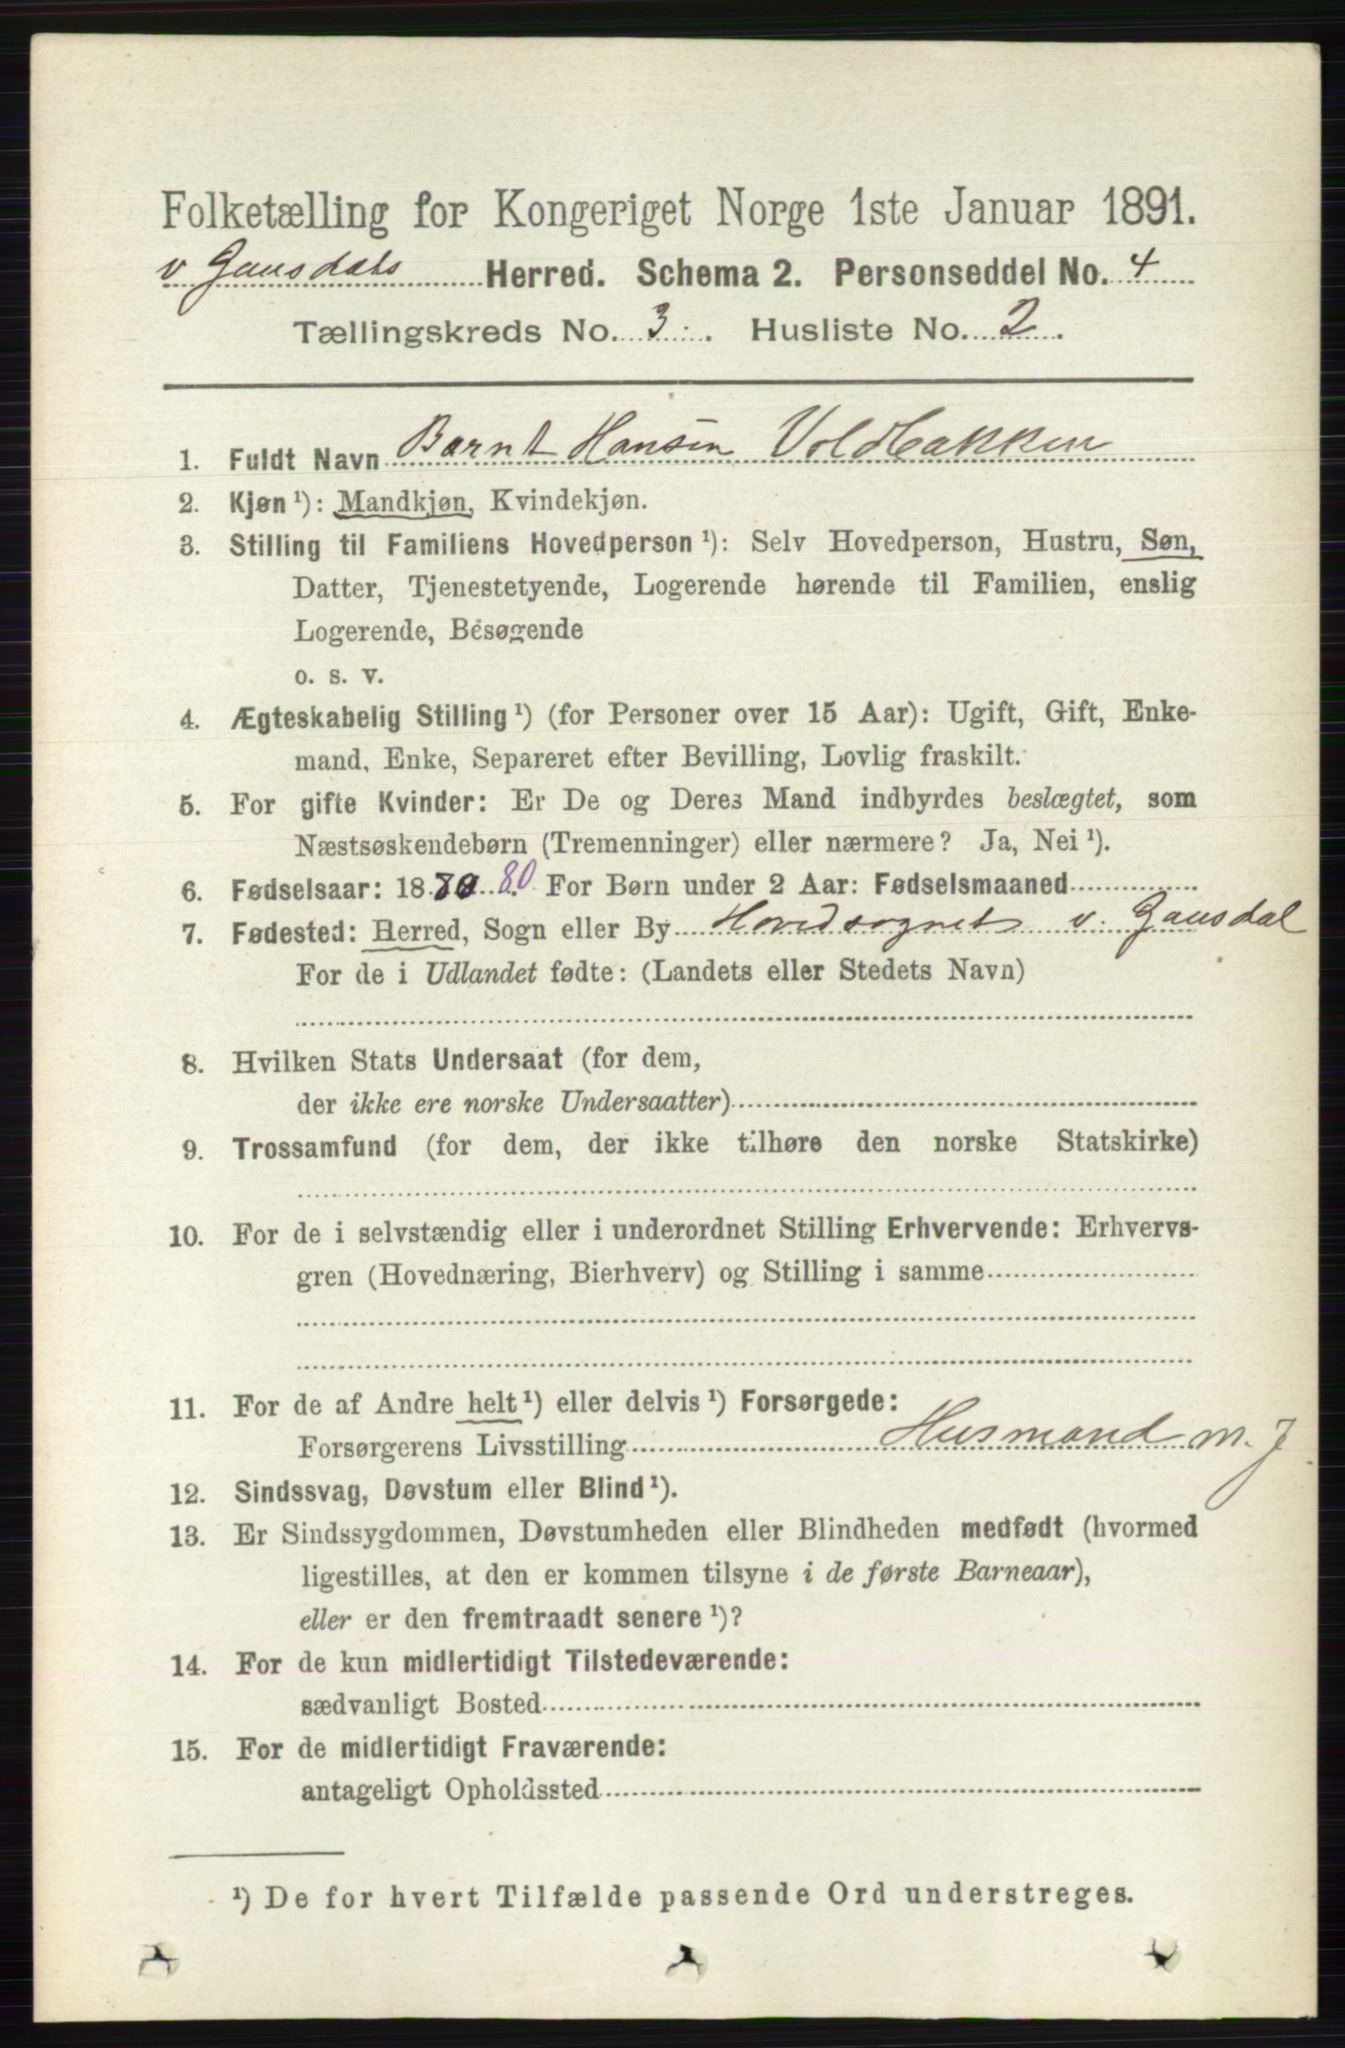 Folketælling for Kongeriget Norge 1ste Januar 1891.
v Gausdals Herred. Schema 2. Personseddel No. 4
Tællingskreds No. 3. Husliste No. 2.
1. Fuldt Navn Bernt Hansen Voldbakken
2. Kjøn ¹): Mandkjøn, Kvindekjøn.
3. Stilling til Familiens Hovedperson ¹): Selv Hovedperson, Hustru, Søn,
Datter, Tjenestetyende, Logerende hørende til Familien, enslig
Logerende, Besøgende
o. s. v.
4. Ægteskabelig Stilling ¹) (for Personer over 15 Aar): Ugift, Gift, Enke-
mand, Enke, Separeret efter Bevilling, Lovlig fraskilt.
5. For gifte Kvinder: Er De og Deres Mand indbyrdes beslægtet, som
Næstsøskendebørn (Tremenninger) eller nærmere? Ja, Nei ¹).
6. Fødselsaar: 1880 80 For Børn under 2 Aar: Fødselsmaaned
7. Fødested: Herred, Sogn eller By Hovedsognet v. Gausdal
For de i Udlandet fødte: (Landets eller Stedets Navn)
8. Hvilken Stats Undersaat (for dem,
der ikke ere norske Undersaatter)
9. Trossamfund (for dem, der ikke tilhøre den norske Statskirke)
10. For de i selvstændig eller i underordnet Stilling Erhvervende: Erhvervs-
gren (Hovednæring, Bierhverv) og Stilling i samme
11. For de af Andre helt ¹) eller delvis ¹) Forsørgede:
Forsørgerens Livsstilling Husmand m. J
12. Sindssvag, Døvstum eller Blind ¹).
13. Er Sindssygdommen, Døvstumheden eller Blindheden medfødt (hvormed
ligestilles, at den er kommen tilsyne i de første Barneaar),
eller er den fremtraadt senere ¹)?
14. For de kun midlertidigt Tilstedeværende:
sædvanligt Bosted
15. For de midlertidigt Fraværende:
antageligt Opholdssted
¹) De for hvert Tilfælde passende Ord understreges.